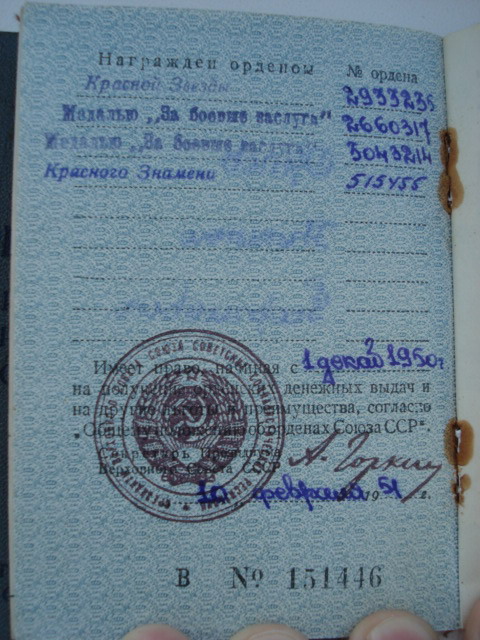 Награжден орденом № ордена
Красной Звезды 2933235
Медалью „За боевые заслуги" 2660317
Медалью „За боевые заслуги" 3043214
Красного Знамени 515455
Имеет право, начиная с 1 декаб 1950г
на получение орденских денежных выдач и
на другие льготы и преимущества, согласно
"Общему положению об орденах Союза ССР".
Секретарь Президиума
Верховного Совета СССР А. Горкин
10 февраля 1951 г.
В № 151446